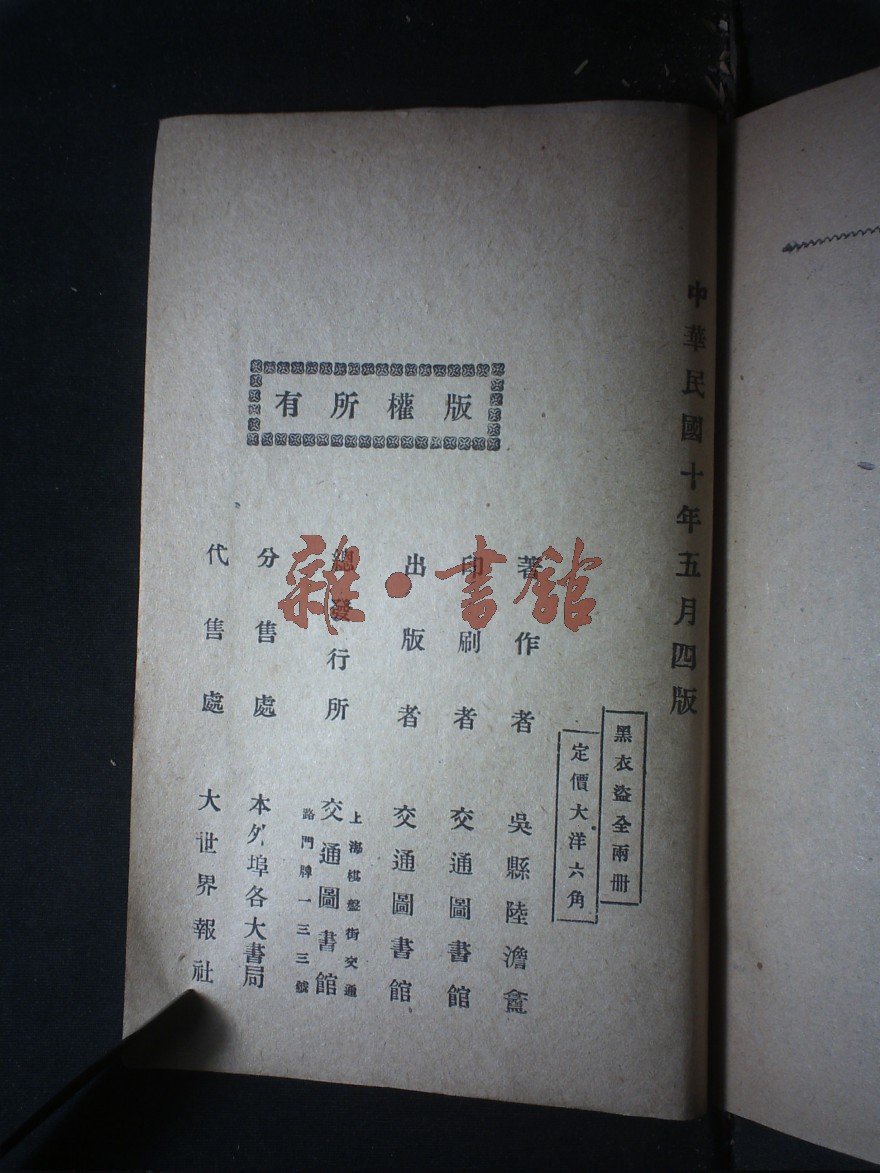 中華民國十年五月四版
黑衣盜全兩冊
定價大洋六角
版權所有
著作者 吳縣陸澹盦
印刷者 交通圖書館
出版者 交通圖書館
總發行所 上海棋盤街交通路門牌一三三號 交通圖書館
分售處 本外埠各大書局
代售處 大世界報社
雜·書館